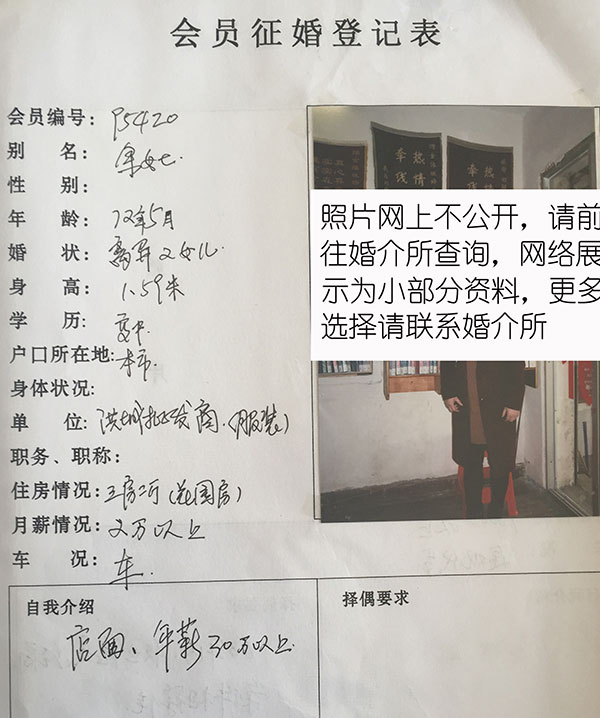 会员征婚登记表
会员编号: P5420
别 名: 余女士
性 别:
年 龄: 72年5月
婚 状: 离异 2女儿
身 高: 1.59米
学 历: 高中
户口所在地: 本市
身体状况:
单 位: 洪城批发商(服装)
职务、职称:
住房情况: 三房二厅(花园房)
月薪情况: 2万以上
车 况: 车.
自我介绍
店面、年薪30万以上
择偶要求
热情
牵线
热情
牵线
照片网上不公开，请前
往婚介所查询，网络展
示为小部分资料，更多
选择请联系婚介所